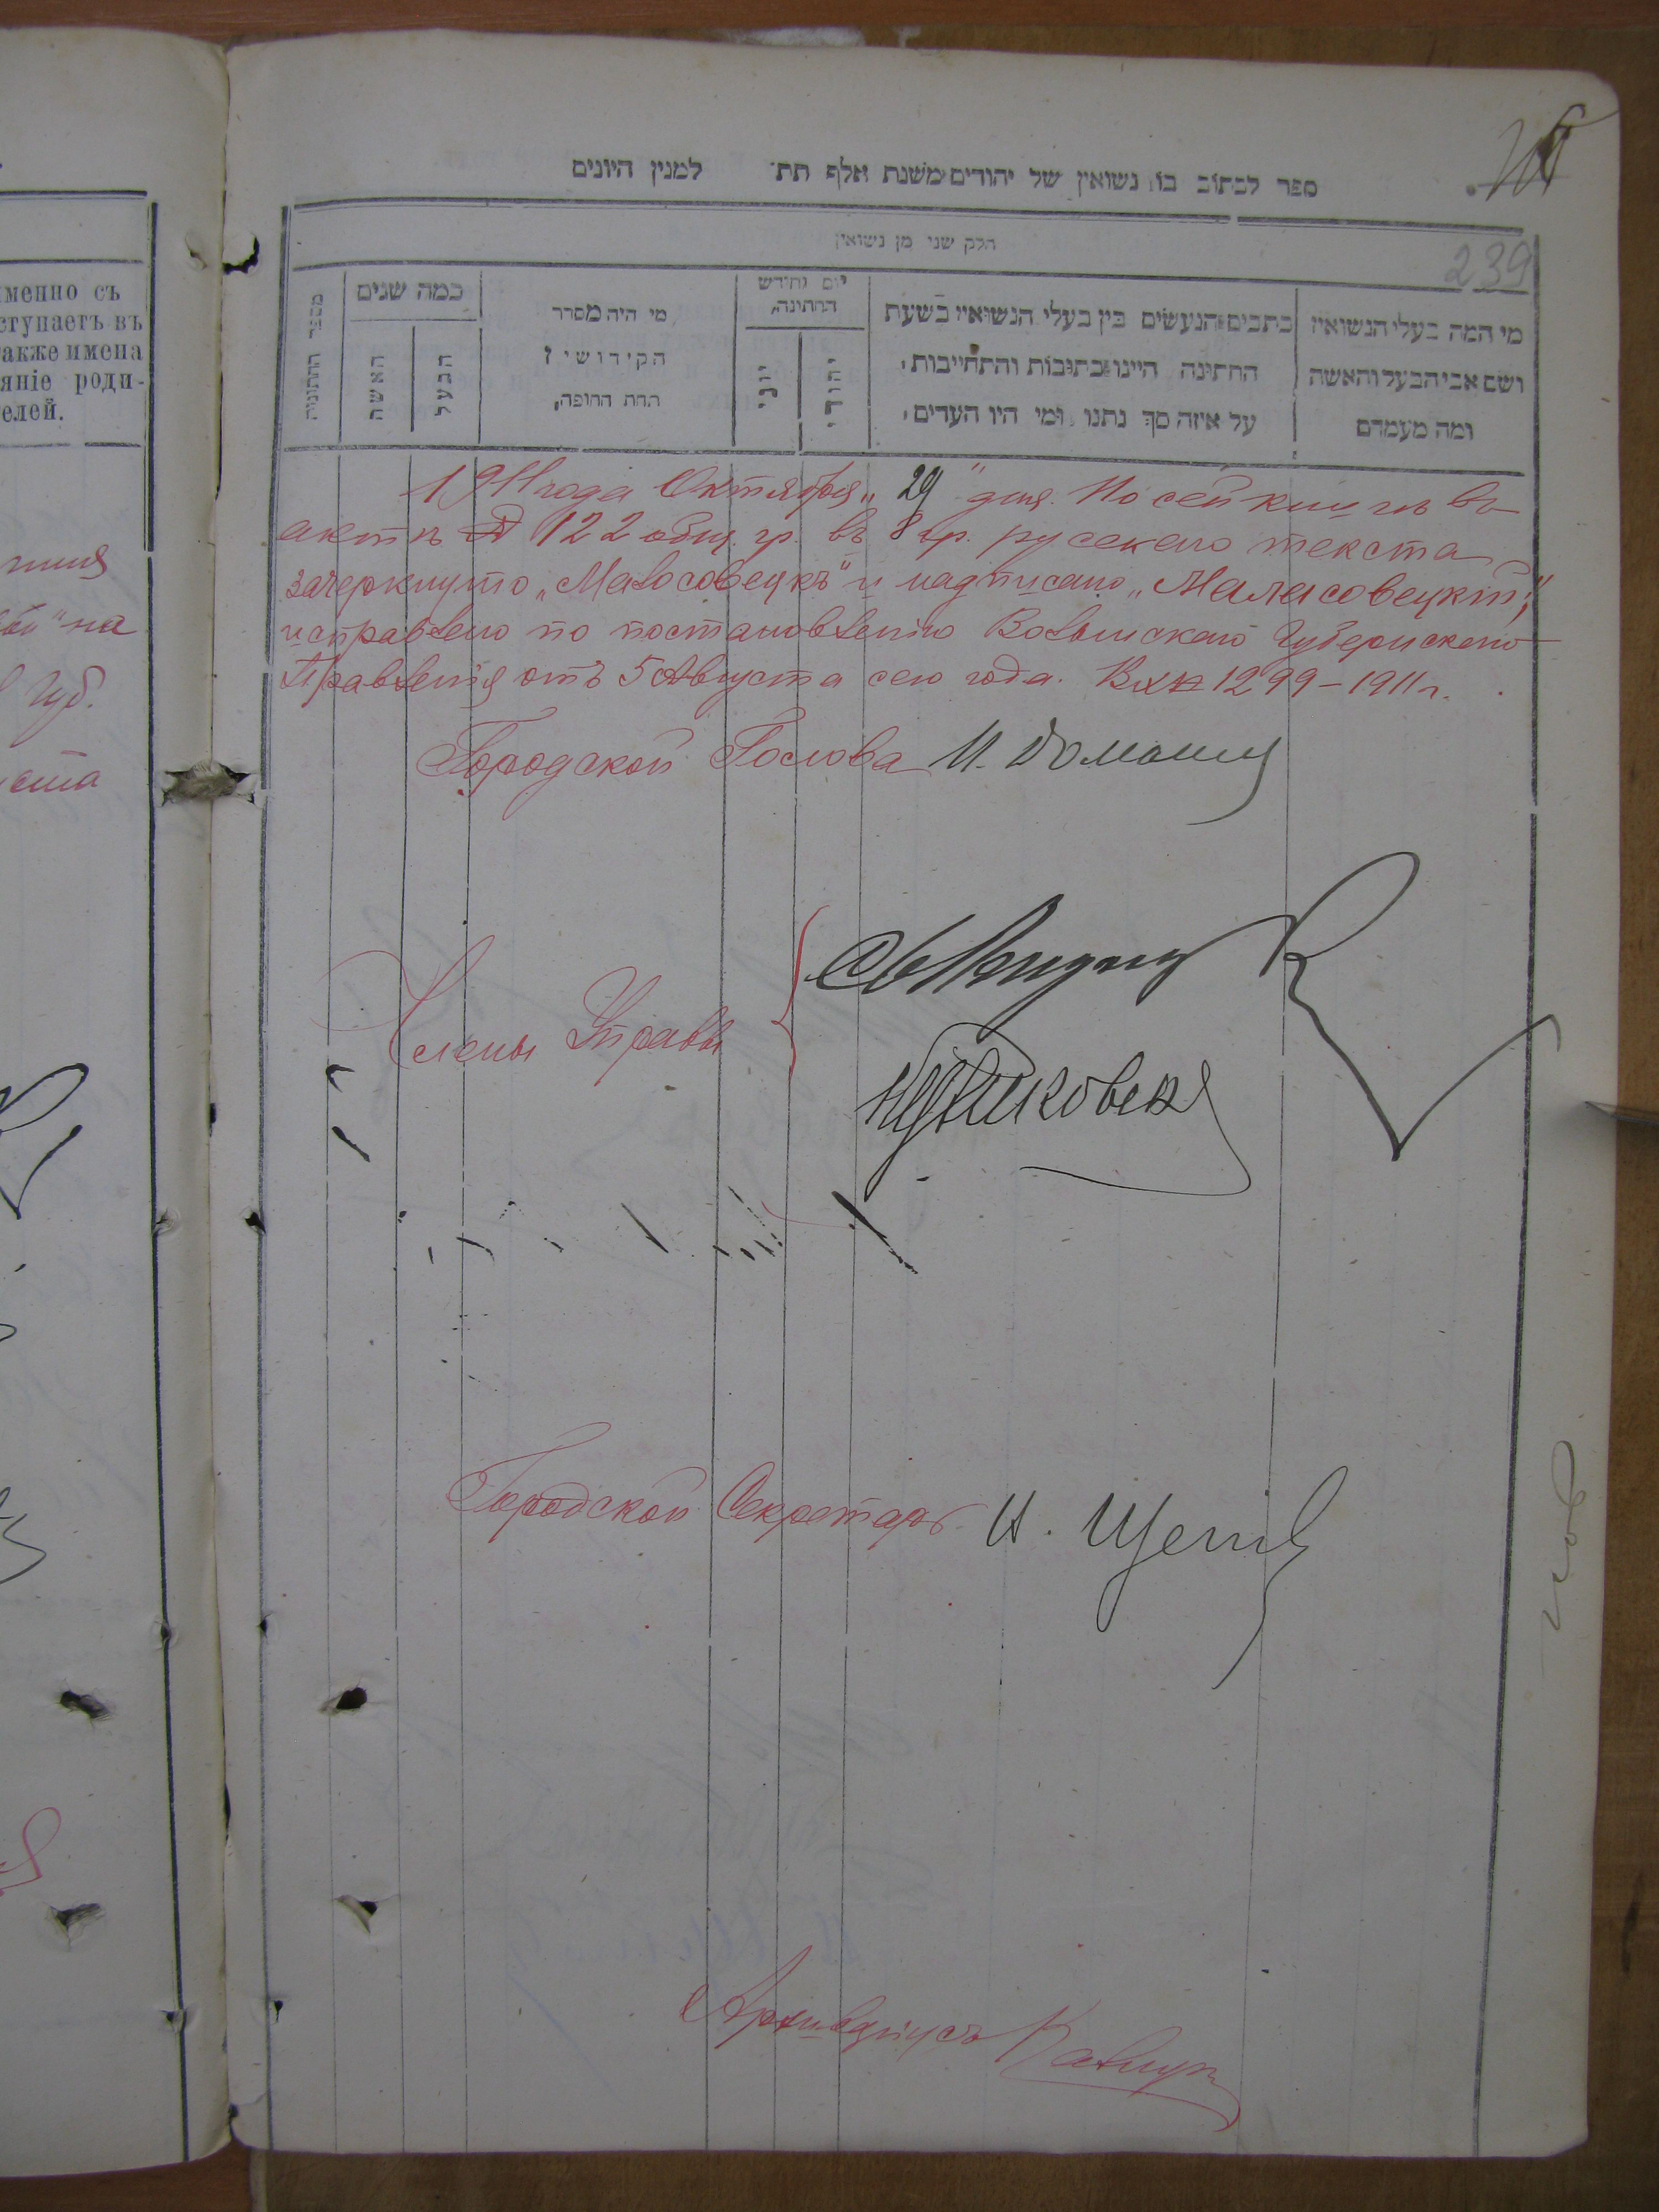 именно съ
ступаетъ въ
также имена
яніе роди-
елей.
на
Губ.
ста
ספר לכתוב בו נשואין של יהודים משנת אלף תת׳ למנין היונים
239
חלק שני מן נשואין
מספר החתונות
כמה שנים
האשה
הבעל
מי היה מסדר
הקידושין
תחת החופה,
יום וחודש
החתונה,
יוני
יהודי
כתבים הנעשים בין בעלי הנשואין בשעת
החתונה היינו כתובות והתחייבות,
על איזה סך נתנו ומי היו העדים,
מי המה בעלי הנשואין
ושם אבי הבעל והאשה
ומה מעמדם
1911 года Октября „29" дня. По сей книгѣ въ
актѣ № 122 общ. гр. въ 8 гр. русскаго текста
зачеркнуто „Малосовецкъ" и надписано „Маласовецкій;"
исправлено по постановленію Волынскаго Губернскаго
Правленія отъ 5 Августа сего года. Вх № 1299-1911 г.
Городской Голова И. Домания
Члены Управы
Городской Секретарь И.
Архиваріусъ